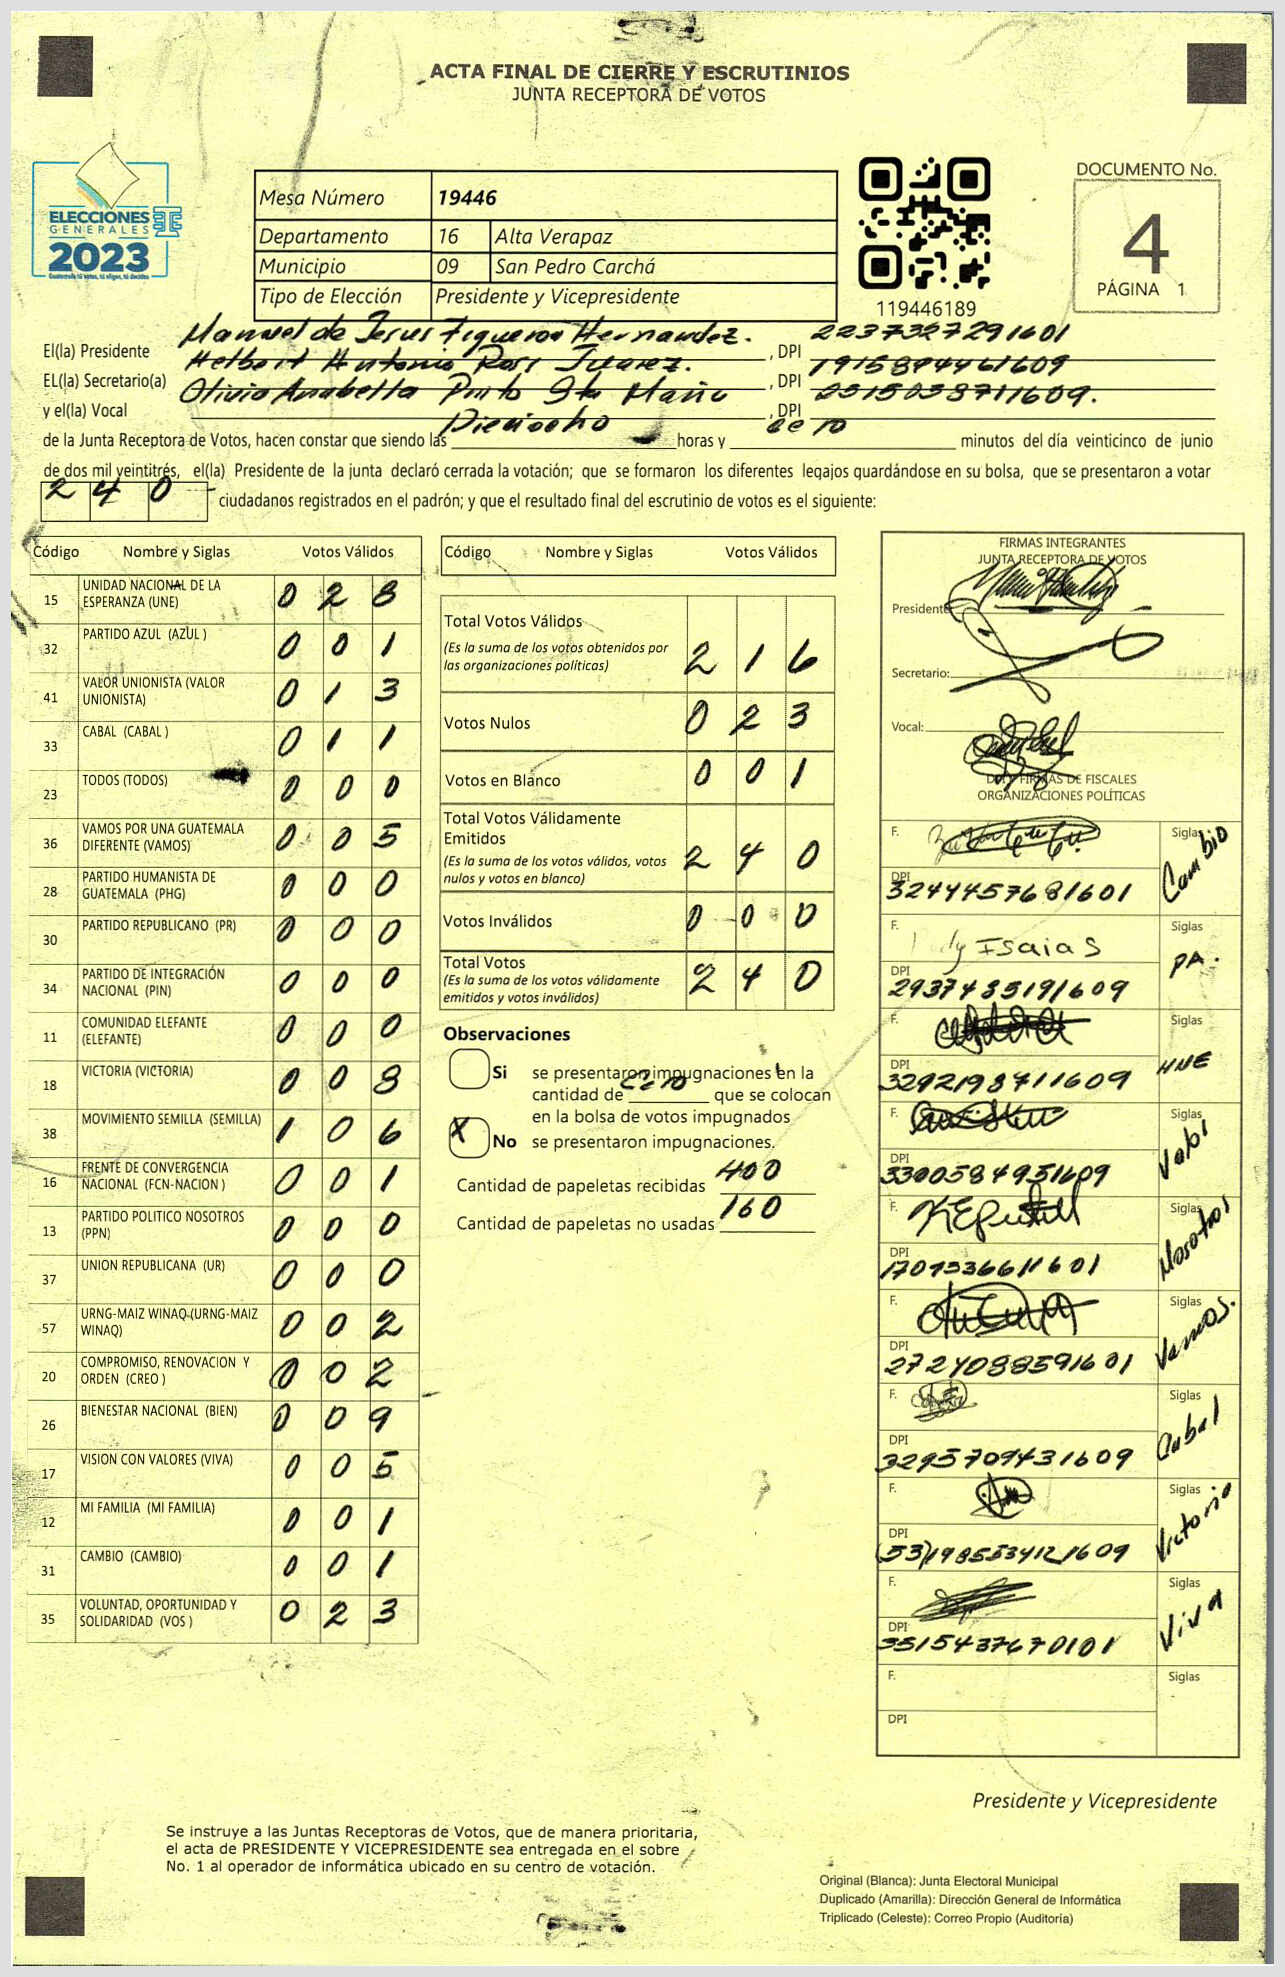 ACTA FINAL DE CIERRE Y ESCRUTINIOS
JUNTA RECEPTORA DE VOTOS
ELECCIONES
GENERALES
2023
Mesa Número 19446
Departamento 16 Alta Verapaz
Municipio 09 San Pedro Carchá
Tipo de Elección Presidente y Vicepresidente
119446189
DOCUMENTO No.
4
PÁGINA 1
El(la) Presidente Manuel de Jesus Figueroa Hernandez. , DPI 2237327291601
EL(la) Secretario(a) Helbert Antonio Rossi Juarez. , DPI 1915894461609
y el(la) Vocal Olivia Anabella Pinto Sta Maria , DPI 2315038711609.
de la Junta Receptora de Votos, hacen constar que siendo las Dieciocho horas y cero minutos del día veinticinco de junio
de dos mil veintitrés, el(la) Presidente de la junta declaró cerrada la votación; que se formaron los diferentes legajos guardándose en su bolsa, que se presentaron a votar
240 ciudadanos registrados en el padrón; y que el resultado final del escrutinio de votos es el siguiente:
Código Nombre y Siglas Votos Válidos
15 UNIDAD NACIONAL DE LA ESPERANZA (UNE) 0 2 8
32 PARTIDO AZUL (AZUL ) 0 0 1
41 VALOR UNIONISTA (VALOR UNIONISTA) 0 1 3
33 CABAL (CABAL ) 0 1 1
23 TODOS (TODOS) 0 0 0
36 VAMOS POR UNA GUATEMALA DIFERENTE (VAMOS) 0 0 5
28 PARTIDO HUMANISTA DE GUATEMALA (PHG) 0 0 0
30 PARTIDO REPUBLICANO (PR) 0 0 0
34 PARTIDO DE INTEGRACIÓN NACIONAL (PIN) 0 0 0
11 COMUNIDAD ELEFANTE (ELEFANTE) 0 0 0
18 VICTORIA (VICTORIA) 0 0 8
38 MOVIMIENTO SEMILLA (SEMILLA) 1 0 6
16 FRENTE DE CONVERGENCIA NACIONAL (FCN-NACION ) 0 0 1
13 PARTIDO POLITICO NOSOTROS (PPN) 0 0 0
37 UNION REPUBLICANA (UR) 0 0 0
57 URNG-MAIZ WINAQ (URNG-MAIZ WINAQ) 0 0 2
20 COMPROMISO, RENOVACION Y ORDEN (CREO ) 0 0 2
26 BIENESTAR NACIONAL (BIEN) 0 0 9
17 VISION CON VALORES (VIVA) 0 0 5
12 MI FAMILIA (MI FAMILIA) 0 0 1
31 CAMBIO (CAMBIO) 0 0 1
35 VOLUNTAD, OPORTUNIDAD Y SOLIDARIDAD (VOS ) 0 2 3
Código Nombre y Siglas Votos Válidos
Total Votos Válidos
(Es la suma de los votos obtenidos por
las organizaciones políticas) 2 1 6
Votos Nulos 0 2 3
Votos en Blanco 0 0 1
Total Votos Válidamente
Emitidos
(Es la suma de los votos válidos, votos
nulos y votos en blanco) 2 4 0
Votos Inválidos 0 0 0
Total Votos
(Es la suma de los votos válidamente
emitidos y votos inválidos) 2 4 0
Observaciones
Si se presentaron impugnaciones en la
cantidad de cero que se colocan
en la bolsa de votos impugnados
X No se presentaron impugnaciones.
Cantidad de papeletas recibidas 400
Cantidad de papeletas no usadas 160
FIRMAS INTEGRANTES
JUNTA RECEPTORA DE VOTOS
Presidente
Secretario:
Vocal:
DPI Y FIRMAS DE FISCALES
ORGANIZACIONES POLÍTICAS
F. Siglas Cambio
DPI 3244457681601
F. Isaias Siglas PA.
DPI 2937485191609
F. Siglas HNE
DPI 3292198711609
F. Siglas
DPI 3300584931609
F. Siglas Nosotros
DPI 1707336611601
F. Siglas Vamos.
DPI 2724088591601
F. Siglas Cabal
DPI 3295709431609
F. Siglas Victoria
DPI
F. Siglas Viva
DPI 3515437670101
F. Siglas
DPI
Presidente y Vicepresidente
Se instruye a las Juntas Receptoras de Votos, que de manera prioritaria,
el acta de PRESIDENTE Y VICEPRESIDENTE sea entregada en el sobre
No. 1 al operador de informática ubicado en su centro de votación.
Original (Blanca): Junta Electoral Municipal
Duplicado (Amarilla): Dirección General de Informática
Triplicado (Celeste): Correo Propio (Auditoría)